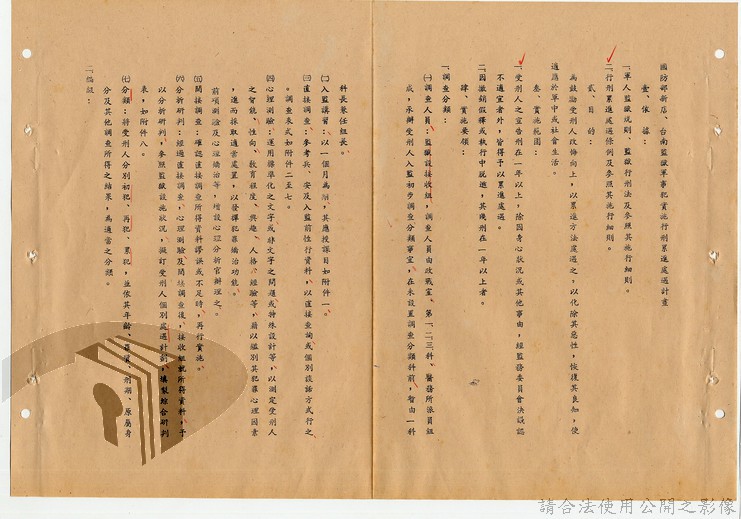 國防部新店、台南監獄軍事犯實施行刑累進處遇計畫
壹、依據：
一軍人監獄規則、監獄行刑法及參照其施行細則。
二行刑累進處遇條例及參照其施行細則。
貳、目的：
為鼓勵受刑人改悔向上，以累進方法處遇之，以化除其惡性，恢復其良知，使
適應於軍中或社會生活。
叁、實施範圍：
一受刑人之宣告刑在一年以上，除因身心狀況或其他事由，經監務委員會決議認
不適宜者外，皆得予以累進處遇。
二因撤銷假釋或執行中脫逃，其殘刑在一年以上者。
肆、實施要領：
一調查分類：
㈠調查人員：監獄設接收組，調查人員由政戰室、第一、二、三科、醫務所派員組
成，承辦受刑人入監初步調查分類事宜，在未設置調查分類科前，暫由一科
科長兼任組長。
㈡入監講習：以一個月為期，其應授課目如附件一。
㈢直接調查：參考兵、安及入監前性行資料，以直接查詢或個別談話方式行之
。調查表式如附件二至七。
㈣心理測驗：運用標準化之文字或非文字之問題或特殊設計等，以測定受刑人
之智能、性向、教育程度、興趣、人格、經驗等，藉以鑑別其犯罪心理因素
，進而採取適當處置，以發揮犯罪矯治功能。
前項測驗及心理矯治等，增設心理分析官辦理之。
㈤間接調查：確認直接調查所得資料謬誤或不足時，再行實施。
㈥分析研判：經過直接調查、心理測驗及間接調查後，接收組就所得資料，予
以分析研判，參照監獄設施狀況，擬訂受刑人個別處遇計劃，填製綜合研判
表，如附件八。
㈦分類：將受刑人分別初犯、再犯、累犯，並依其年齡、罪質、刑期、原屬身
分及其他調查所得之結果，為適當之分類。
二編級：
請合法使用公開之影像